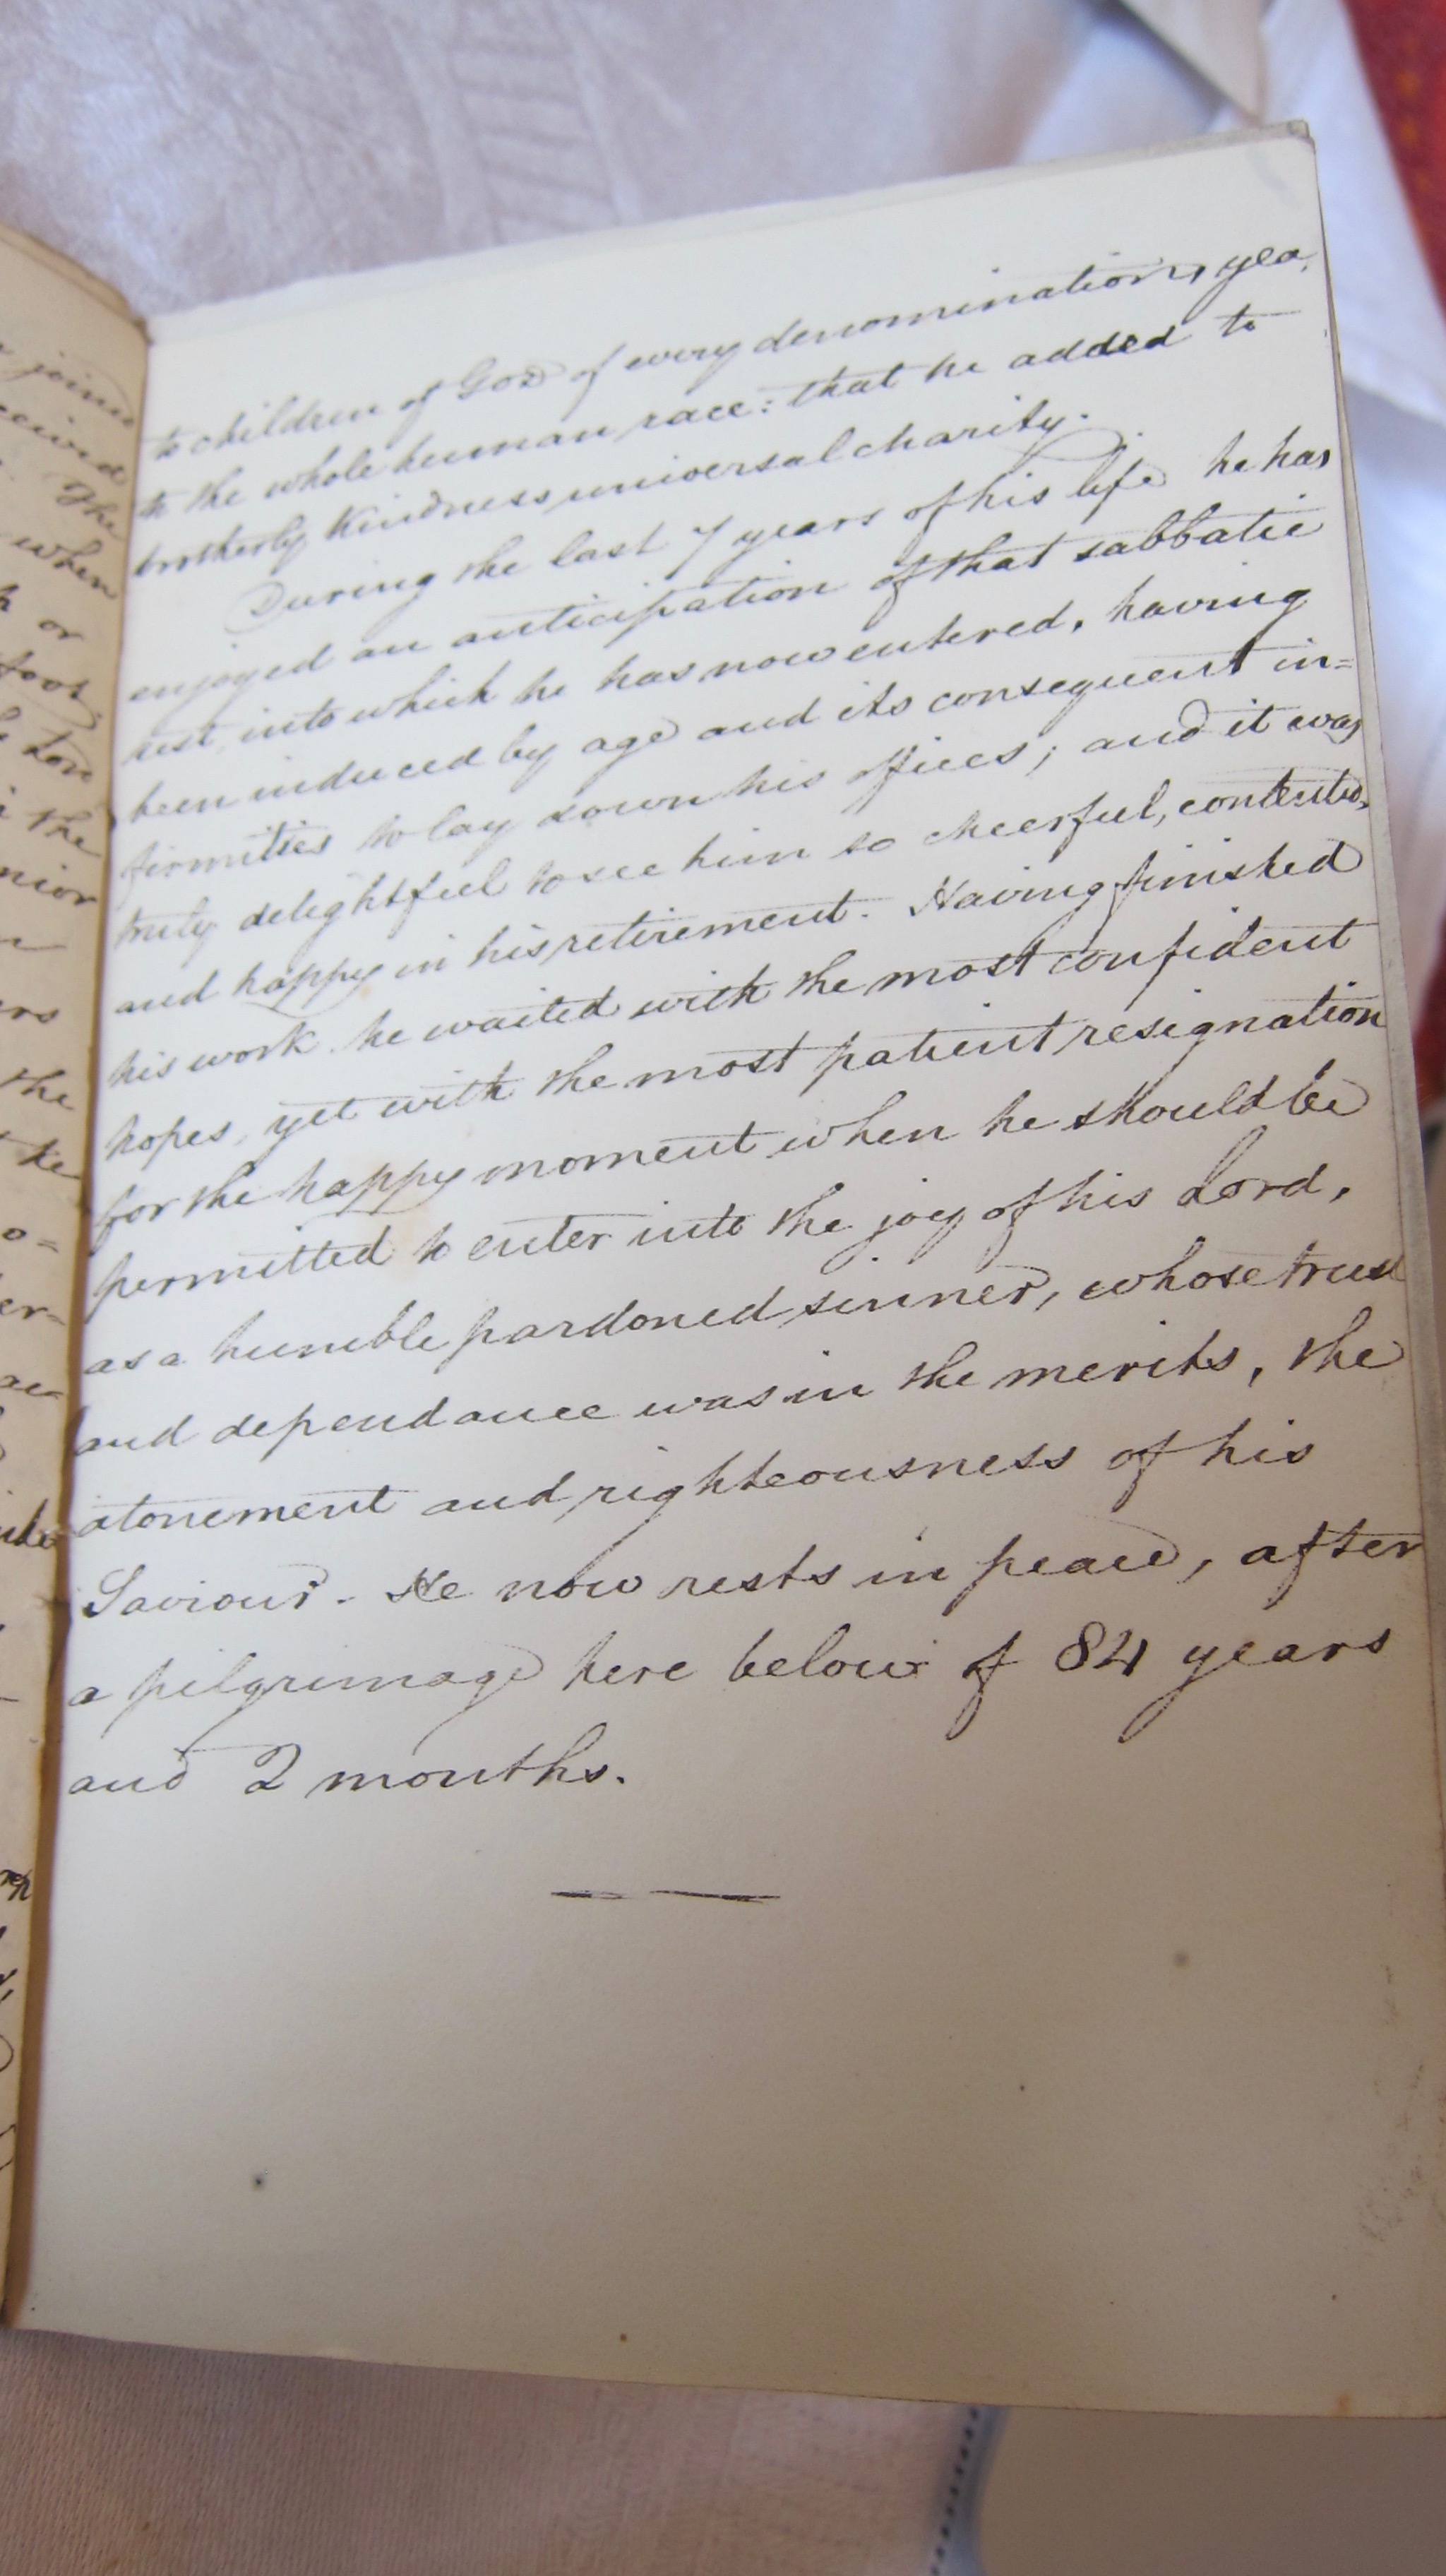 to children of God of every denomination, yea,
to the whole human race: that he added to
brotherly kindness universal charity.
During the last 7 years of his life he has
enjoyed an anticipation of that sabbatic
rest into which he has now entered, having
been induced by age and its consequent in=
firmities to lay down his offices; and it was
truly delightful to see him so cheerful, contented,
and happy in his retirement. Having finished
his work he waited with the most confident
hopes, yet with the most patient resignation
for the happy moment when he should be
permitted to enter into the joy of his Lord,
as a humble pardoned sinner, whose trust
and dependance was in the merits, the
atonement and righteousness of his
Saviour. He now rests in peace, after
a pilgrimage here below of 84 years
and 2 months.